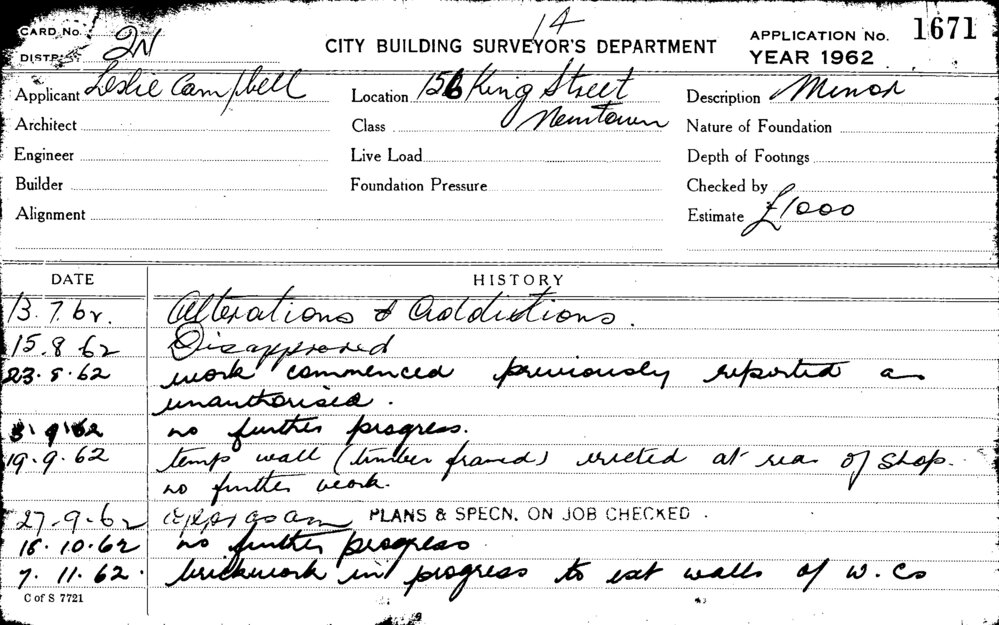 14
CARD No. 2N CITY BUILDING SURVEYOR'S DEPARTMENT APPLICATION No. 1671
DISTR. YEAR 1962
Applicant Leslie Campbell Location 156 King Street Description Minor
Architect Class Newtown Nature of Foundation
Engineer Live Load Depth of Footings
Builder Foundation Pressure Checked by
Alignment Estimate £1000
DATE HISTORY
13.7.62. Alterations & Additions.
15.8.62 Disapproved
23.8.62 work commenced previously reported as
unauthorised.
9.62 no further progress.
19.9.62 temp wall (timber framed) erected at rear of shop.
no further work.
27-9-62 PLANS & SPECN. ON JOB CHECKED.
16.10.62 no further progress
7.11.62. brickwork in progress to ext walls of W.Cs
C of S 7721